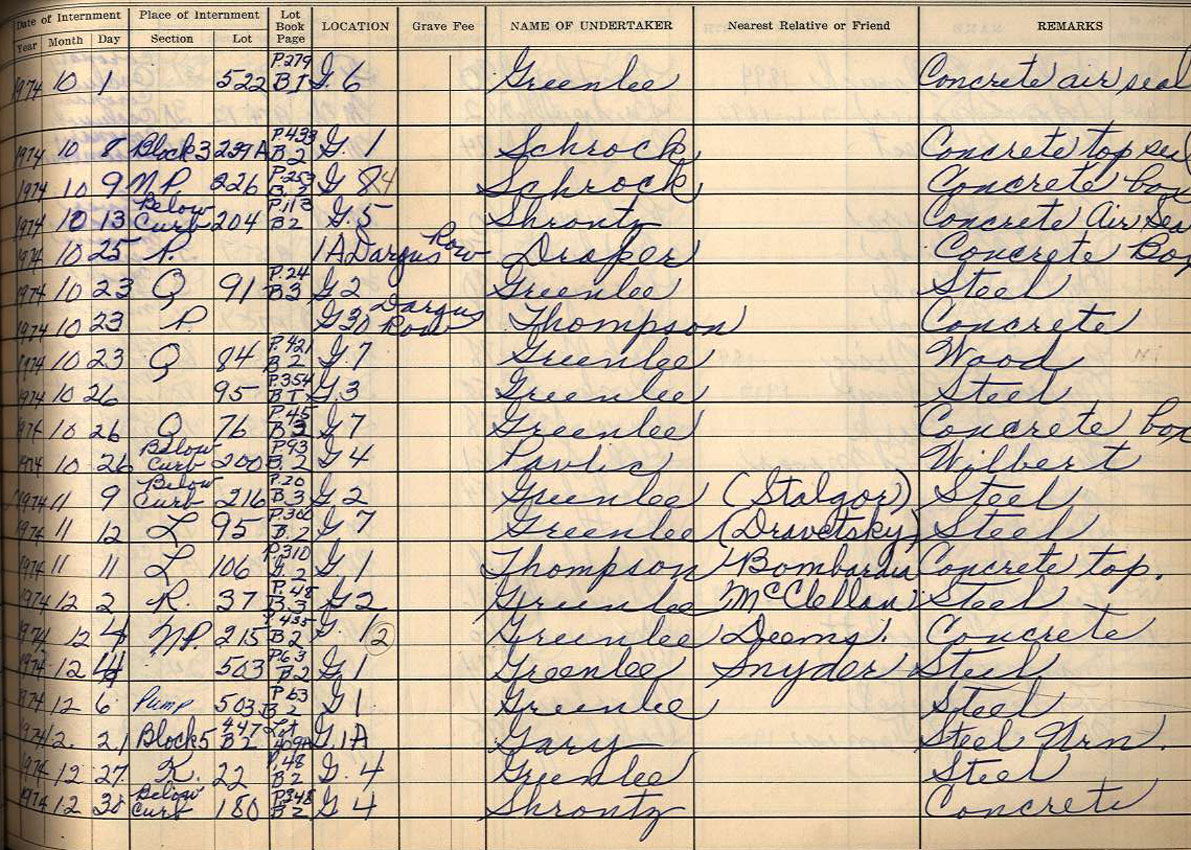 Date of Internment Place of Internment Lot Book Page LOCATION Grave Fee NAME OF UNDERTAKER Nearest Relative or Friend REMARKS
Year Month Day Section Lot
1974 10 1 522 P.279 B1 G.6 Greenlee Concrete air seal
1974 10 8 Block 3 239A P.433 B.2 G.1 Schrock Concrete top seal
1974 10 9 N.P. 226 P.253 B.2 G 84 Schrock Concrete box
1974 10 13 Below Curb 204 P.113 B2 G.5 Shrontz Concrete Air Sea
1974 10 25 P. 1A Dargus Row Draper Concrete Box
1974 10 23 Q 91 P.24 B3 G.2 Greenlee Steel
1974 10 23 P G30 Dargus Row Thompson Concrete
1974 10 23 Q 84 P.421 B2 G.7 Greenlee Wood
1974 10 26 95 P.354 B1 G.3 Greenlee Steel
1974 10 26 Q 76 P.45 B3 G7 Greenlee Concrete box
1974 10 26 Below Curb 200 P.93 B.2 G4 Pavlic Wilbert
1974 11 9 Below Curb 216 P.20 B.3 G.2 Greenlee (Stalgor) Steel
1974 11 12 L 95 B.2 G 7 Greenlee (Dravetsky) Steel
1974 11 11 L 106 P.310 G 1 Thompson Concrete top.
1974 12 2 R. 37 P.48 B.3 G2 Greenlee McClellan Steel
1974 12 4 N.P. 215 P.435 B2 G.1 2 Greenlee Deems. Concrete
1974 12 4 503 P.63 B2 G.1 Greenlee Snyder Steel
1974 12 6 Pump 503 P.63 B2 G1 Greenlee Steel
1974 12. 21 Block 5 447 B2 Lot 409A G.1A Gary Steel Urn.
1974 12 27 K. 22 P.48 B2 G.4 Greenlee Steel
1974 12 30 Below Curb 180 P.348 B2 G 4 Shrontz Concrete